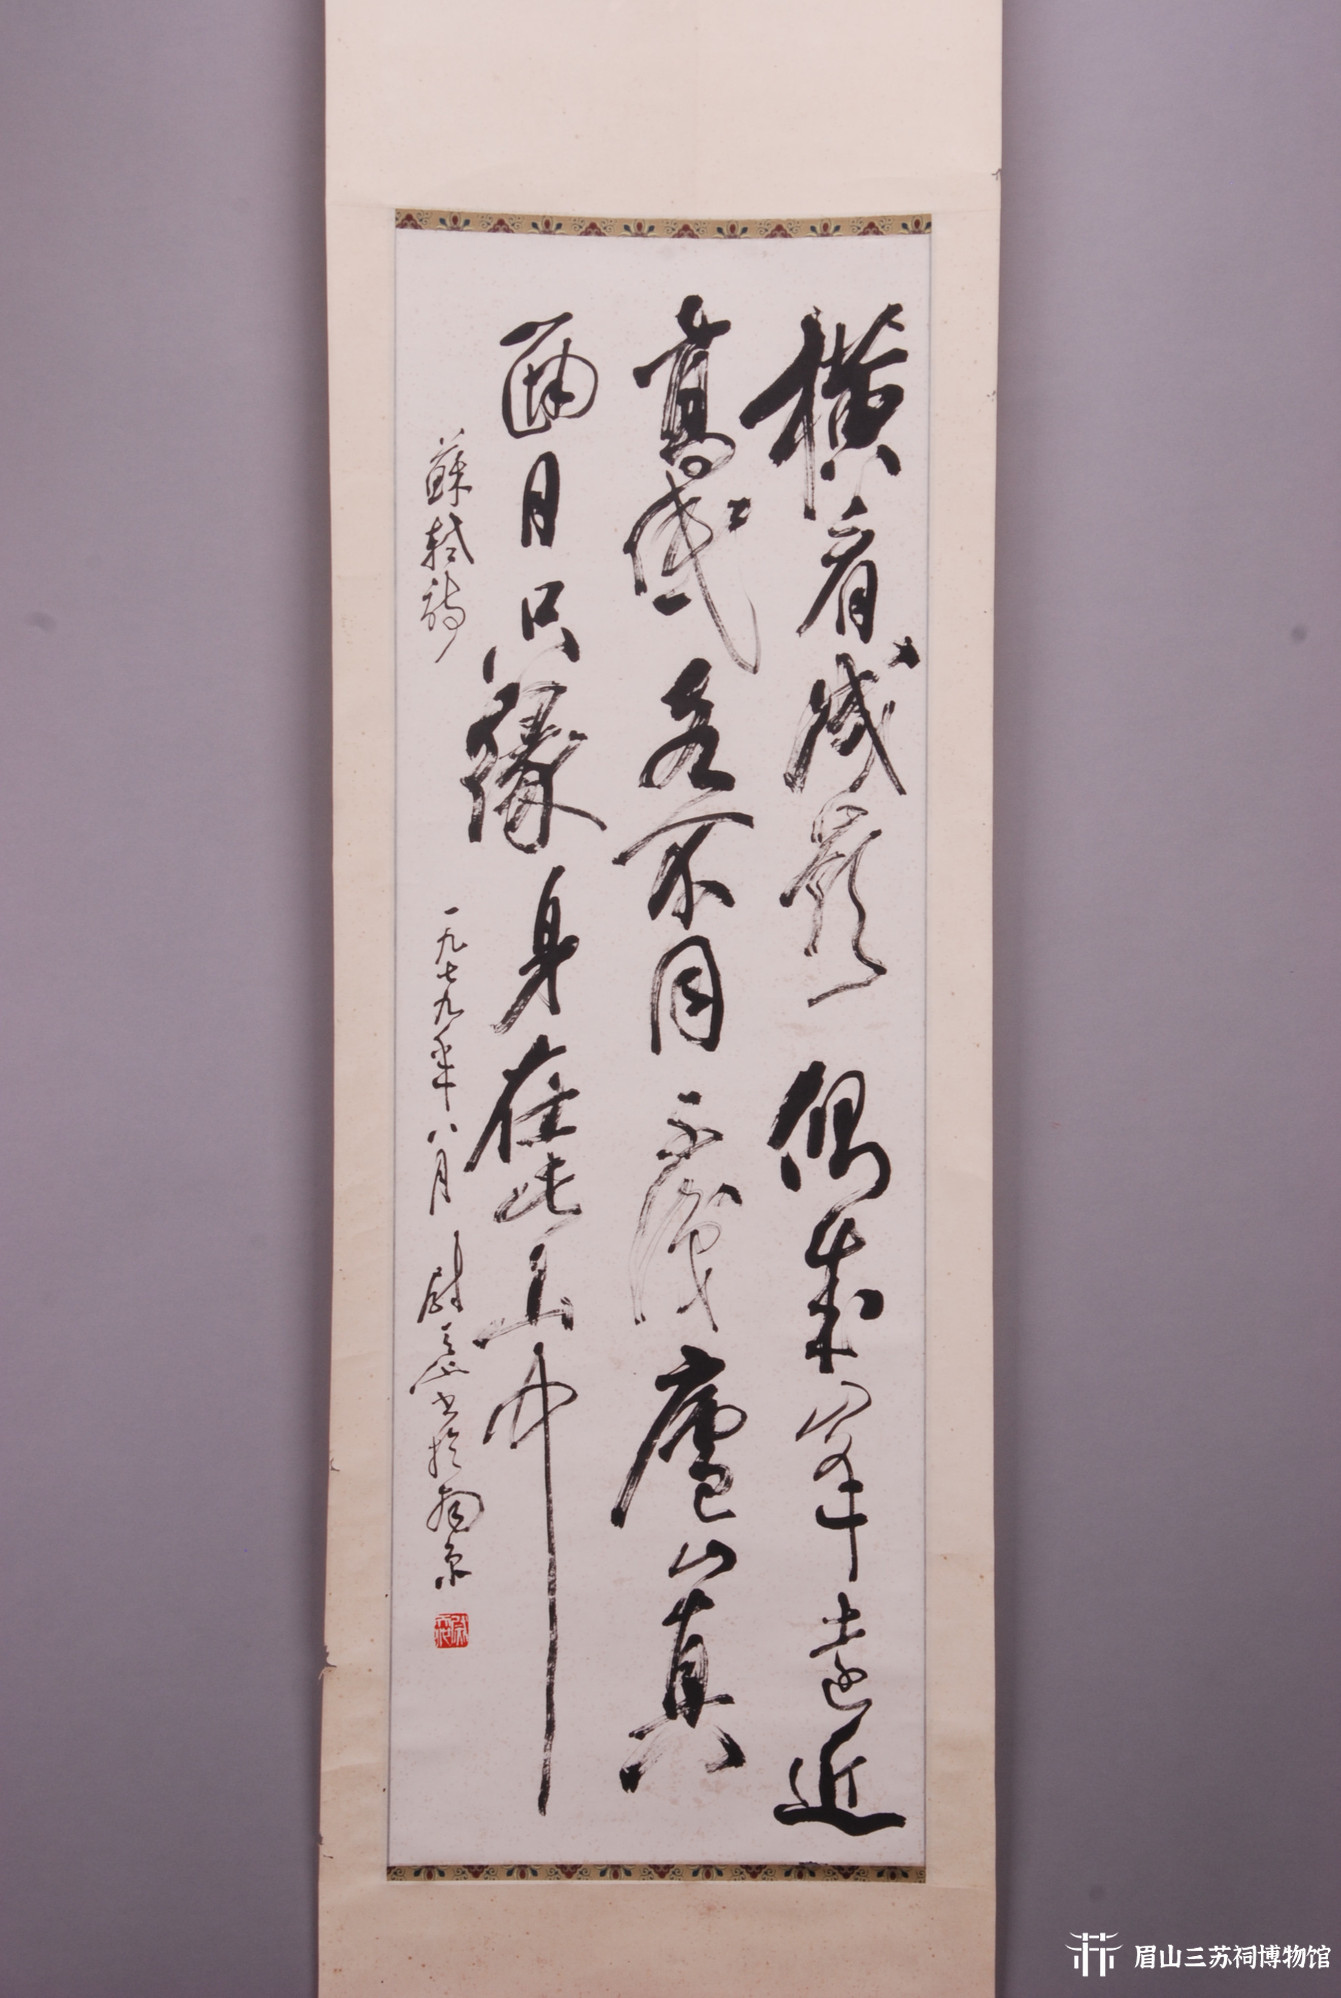 横看成岭侧成峰远近
高低各不同不识庐山真
面目只缘身在此山中
苏轼诗
一九七九年八月尉天池书于南京
眉山三苏祠博物馆